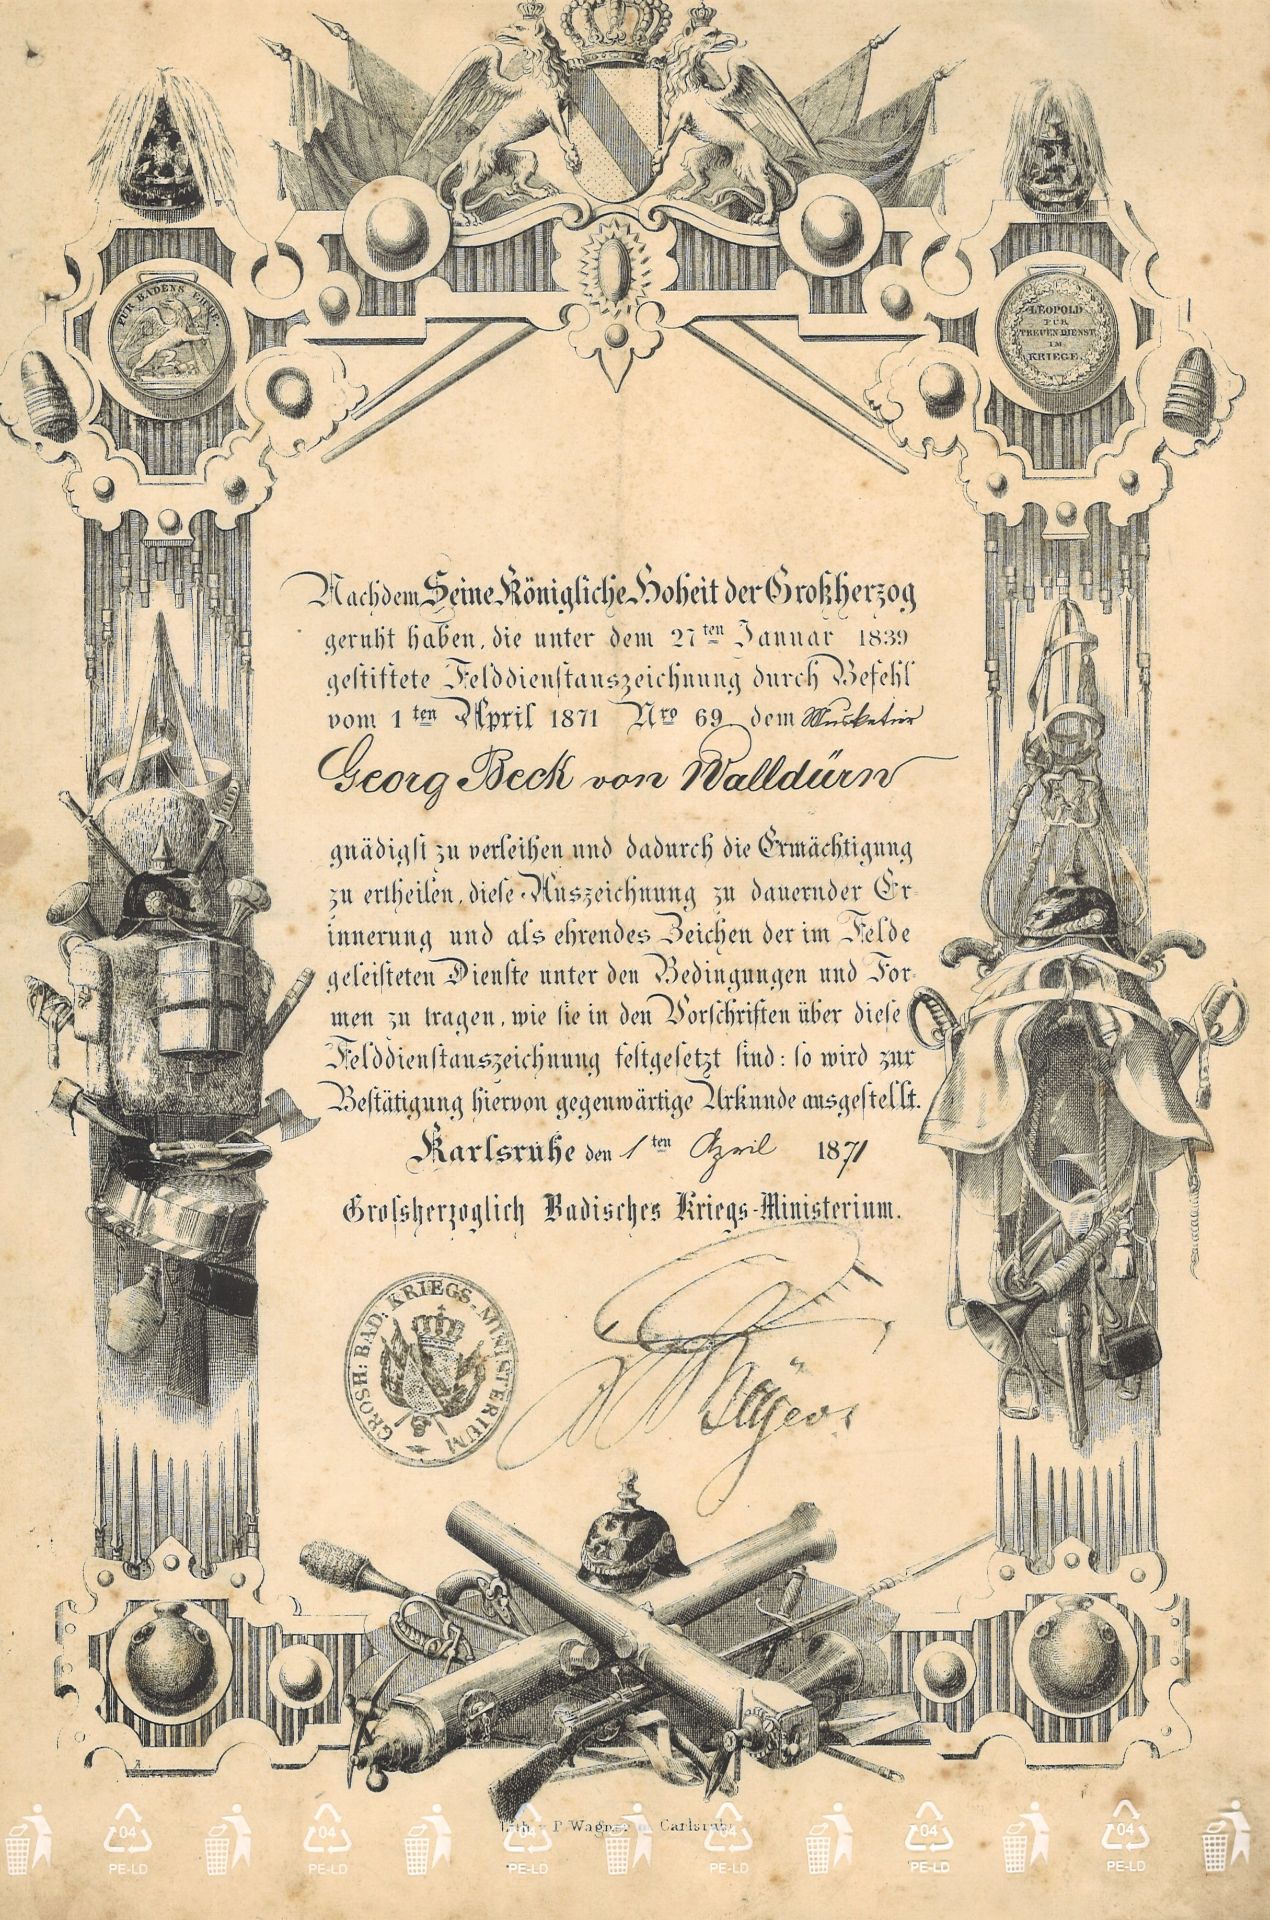 FÜR BADENS EHRE.
LEOPOLD
FÜR
TREUEN DIENST
IM
KRIEGE.
Nachdem Seine Königliche Hoheit der Großherzog
geruht haben, die unter dem 27ten Januar 1839
gestiftete Felddienstauszeichnung durch Befehl
vom 1ten April 1871 Nro 69 dem Musketier
Georg Beck von Walldürn
gnädigst zu verleihen und dadurch die Ermächtigung
zu ertheilen, diese Auszeichnung zu dauernder Er-
innerung und als ehrendes Zeichen der im Felde
geleisteten Dienste unter den Bedingungen und For-
men zu tragen, wie sie in den Vorschriften über diese
Felddienstauszeichnung festgesetzt sind: so wird zur
Bestätigung hiervon gegenwärtige Urkunde ausgestellt.
Karlsruhe den 1ten April 1871
Grossherzoglich Badisches Kriegs-Ministerium.
GROSH: BAD: KRIEGS-MINISTERIUM
Lith. v. P. Wagner in Carlsruhe
04 04 04 04 04 04
PE-LD PE-LD PE-LD PE-LD PE-LD PE-LD